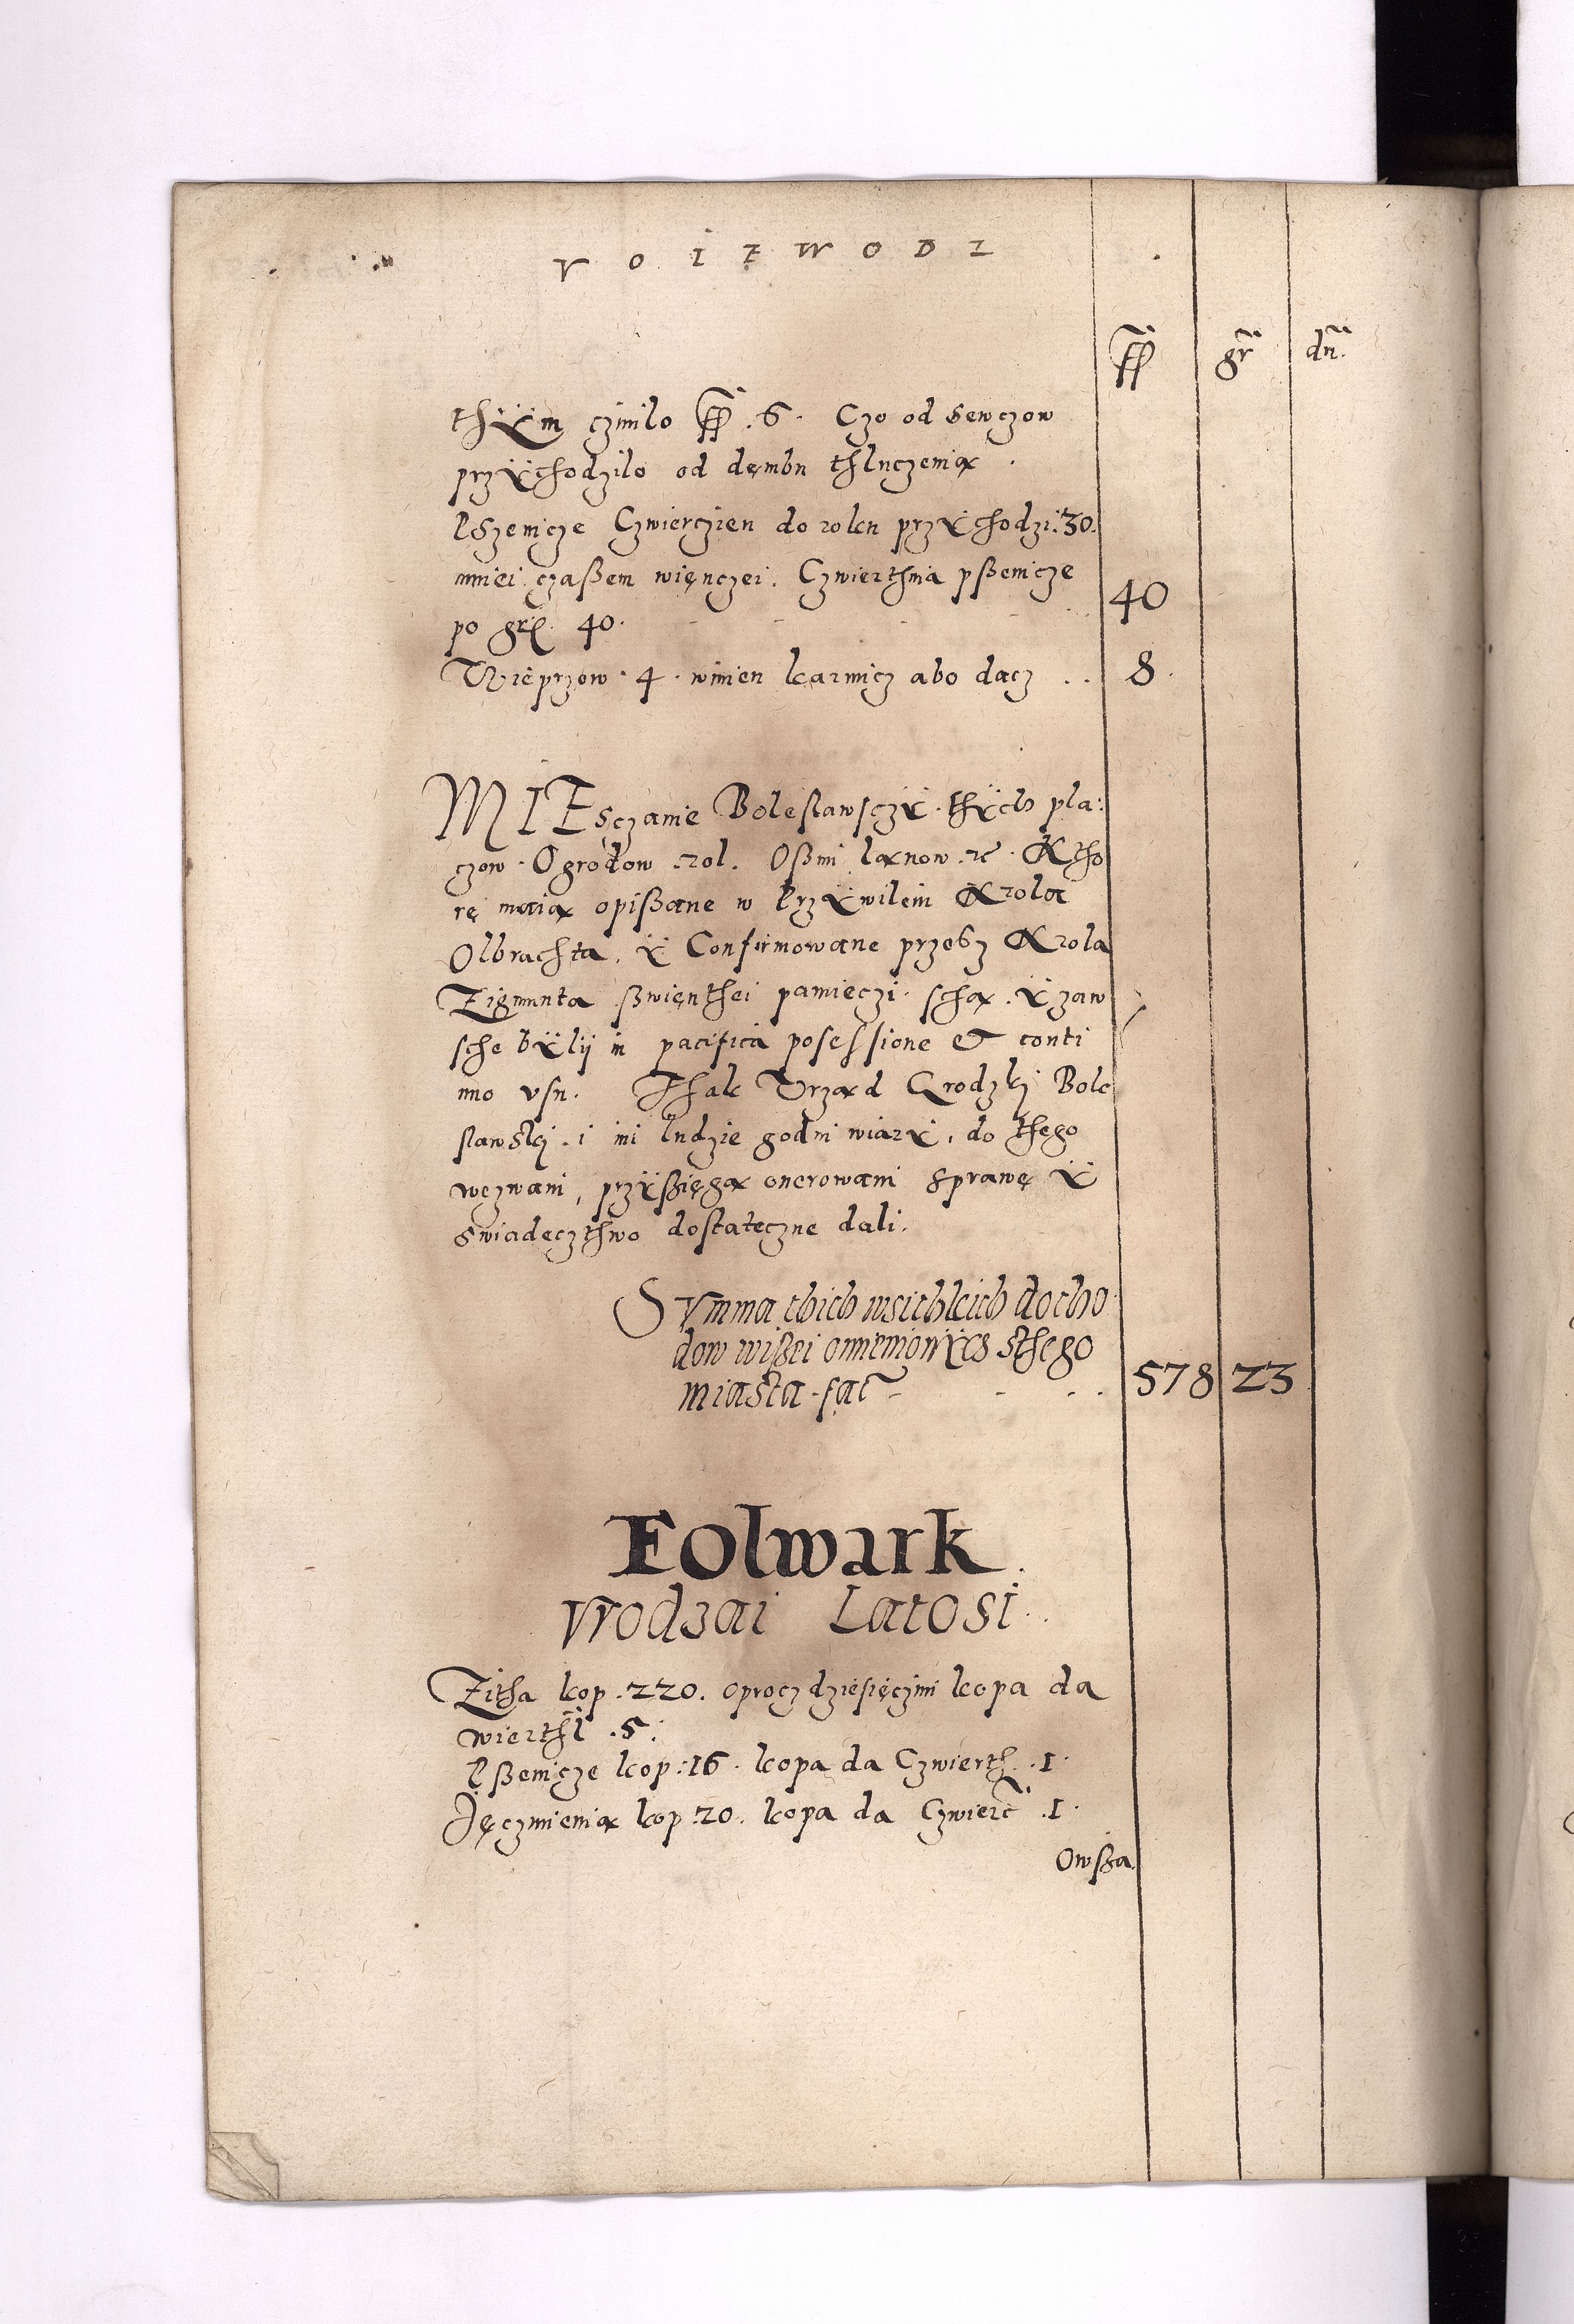 VOIĘWODZ
ff gr dn.
thÿm czinilo ff .6. Czo od sewczow
przÿchodzilo od dęmbu thluczenia .
Pszenicze Czwierczien do roku przÿchodzi .30.
mniei czaßem więnczei. Czwierthnia pßenicze
po grſ. 40. 40
Wieprzow . 4 . winien karmicz abo dacz .. 8
MIEsczanie Boleslawsczÿ . thÿch pla:
czow . Ogrodow . rol . Oßmi lanow . rc . Ktho
rę maią opißane w Przÿwileiu Krola
Olbrachta, ÿ Confirmowane przesz Krola
Zigmunta ßwienthei pamieczi . schą . ÿ zaw
sche bÿlij in pacifica posessione & conti
nuo vsu. Thak Vrząd Grodzkj Bole
slawskj . i ini ludzie godni wiarÿ, do thego
wezwani, przÿßięgą onerowani sprawę ÿ
swiadeczthwo dostateczne dali.
Svmma thich wsithkich docho
dow wißei omienionÿch sthego
miasta . fac 578 23
Folwark
Vrodzai Latosi
Zitha kop . 220. oprocz dziesięczini kopa da
wierthl .5.
Pßenicze kop : 16 . kopa da Czwierth . 1.
Jęczmienia kop : 20 . kopa da Czwierc .1.
Owßa